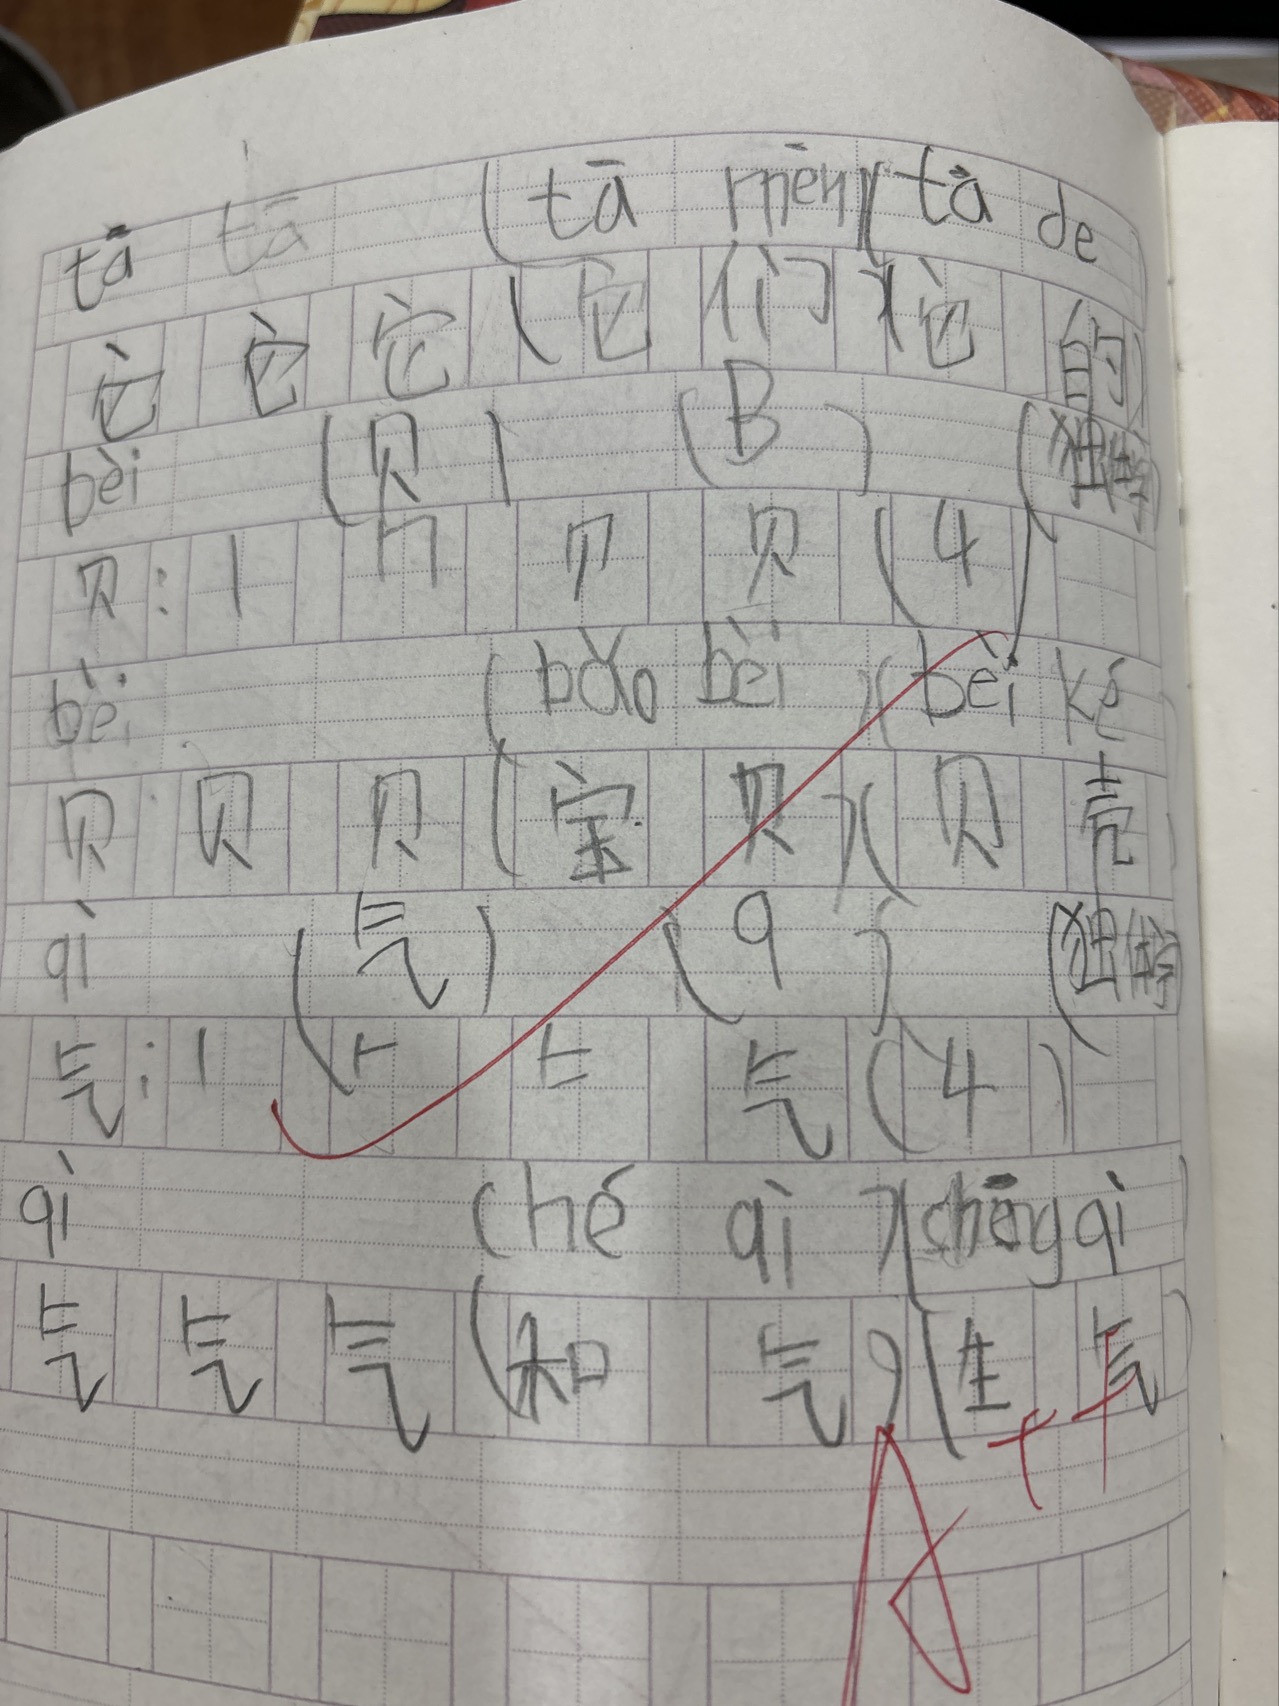 tā tā (tā mēn)(tā de
它 它 它 (它 们)(它 的)
bèi (贝) (B) (独体字
贝: 丨 冂 贝 (4)
bèi (bǎo bèi)(bèi ké)
贝 贝 贝 (宝 贝)(贝 壳)
qì (气) (q) (独体字
气: 气 (4)
qì (hé qì)(shēng qì)
气 气 气 (和 气)(生 气)
A++